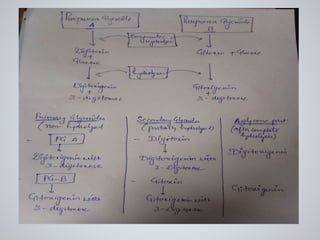 Purpurea Glycoside
A
Purpurea Glycoside
B
Enzymatic
Hydrolysis
Digitoxin
+
Glucose
Gitoxin + Glucose
hydrolysis
Digitoxigenin
+
3-digitoxose
Gitoxigenin
+
3-digitoxose
Primary Glycosides
(non-hydrolysed)
- PG A
Digitoxigenin with
3-digitoxose
PG-B
Gitoxigenin with
3-digitoxose
Secondary Glycosides
(partially hydrolysed)
- Digitoxin
Digitoxigenin with
3-Digitoxose
- Gitoxin
Gitoxigenin with
3-Digitoxose
Aglycone part
(after complete
hydrolysis)
Digitoxigenin
Gitoxigenin